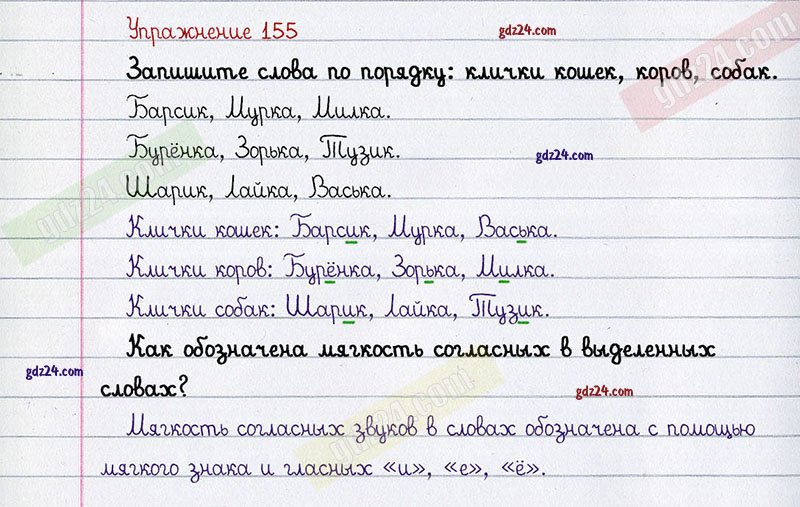 Упражнение 155
gdz24.com
gdz24.com
Запишите слова по порядку: клички кошек, коров, собак.
Барсик, Мурка, Милка.
Бурёнка, Зорька, Тузик.
gdz24.com
Шарик, Лайка, Васька.
gdz24.com
Клички кошек: Барсик, Мурка, Васька.
Клички коров: Бурёнка, Зорька, Милка.
Клички собак: Шарик, Лайка, Тузик.
Как обозначена мягкость согласных в выделенных
gdz24.com
словах?
gdz24.com
gdz24.com
Мягкость согласных звуков в словах обозначена с помощью
мягкого знака и гласных «и», «е», «ё».